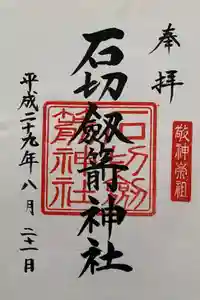 奉拝
敬神崇祖
石切劔箭神社
石切劔箭神社
平成二十九年八月二十一日